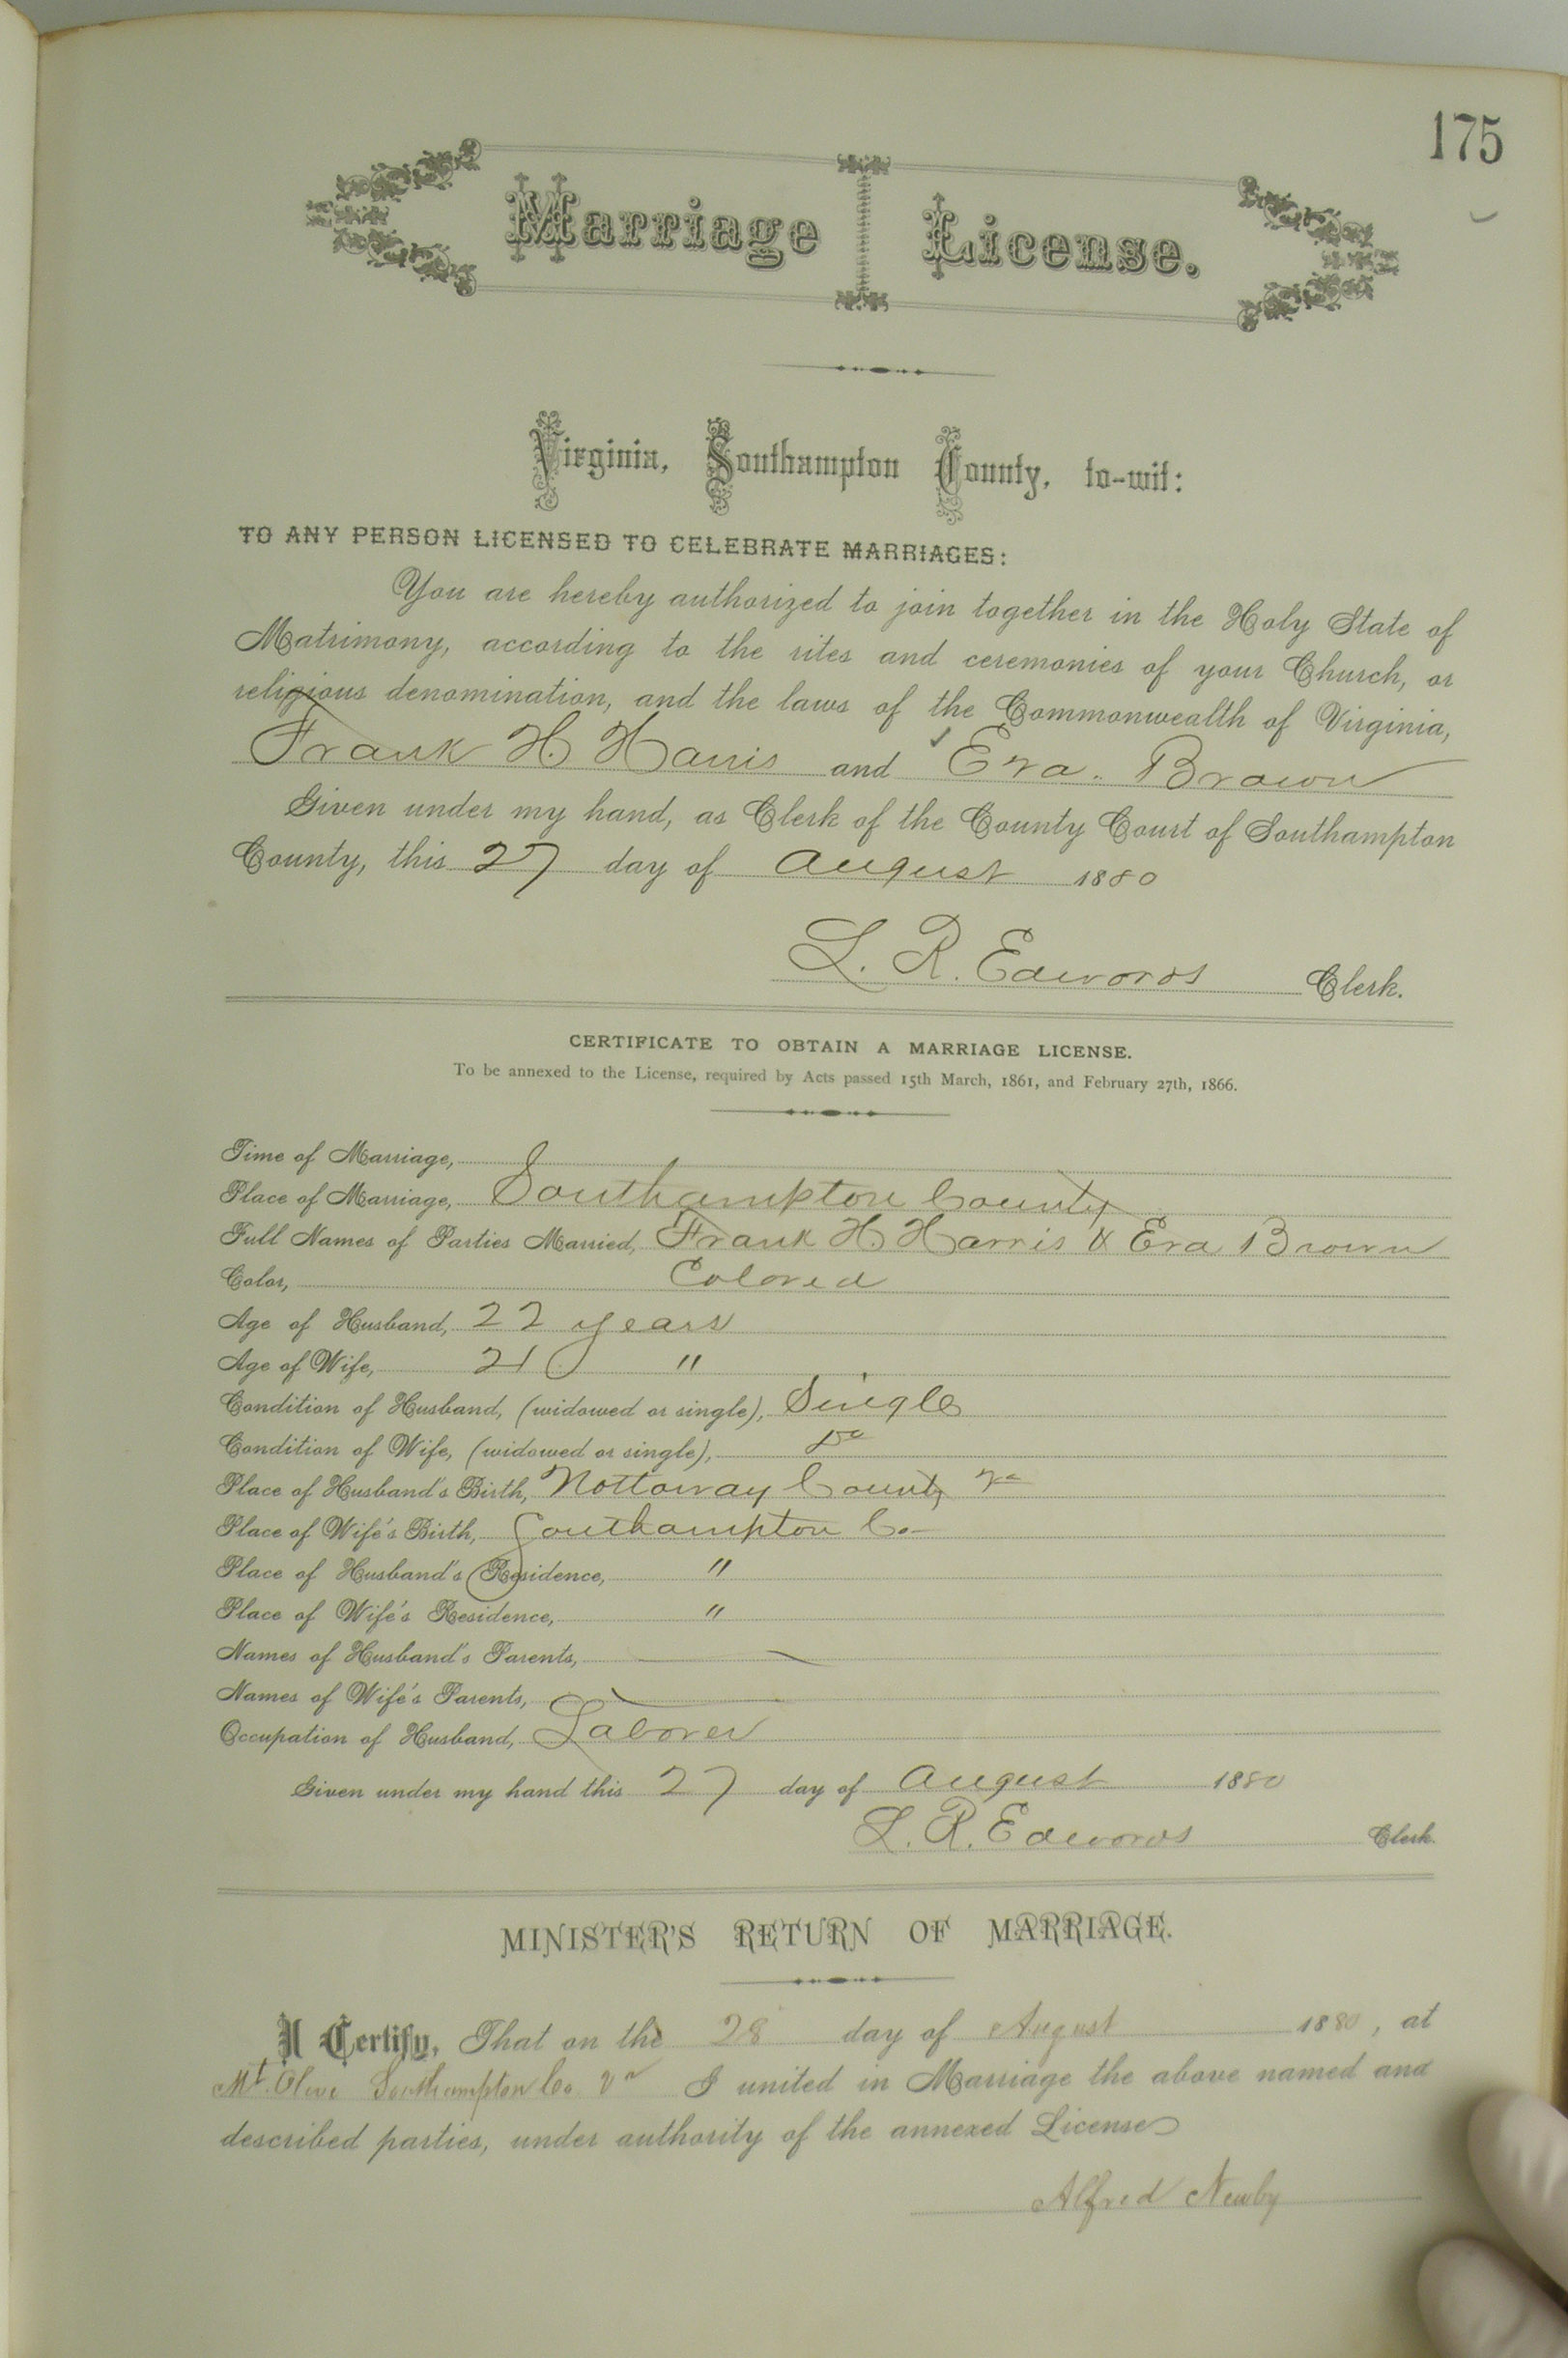 175
Marriage License.
Virginia, Southampton County, to-wit:
TO ANY PERSON LICENSED TO CELEBRATE MARRIAGES:
You are hereby authorized to join together in the Holy State of
Matrimony, according to the rites and ceremonies of your Church, or
religious denomination, and the laws of the Commonwealth of Virginia,
Frank H. Harris and Eva. Brown
Given under my hand, as Clerk of the County Court of Southampton
County, this 27 day of August 1880
L. R. Edwards Clerk.
CERTIFICATE TO OBTAIN A MARRIAGE LICENSE.
To be annexed to the License, required by Acts passed 15th March, 1861, and February 27th, 1866.
Time of Marriage,
Place of Marriage, Southampton County
Full Names of Parties Married, Frank H. Harris & Eva Brown
Color, Colored
Age of Husband, 22 years
Age of Wife, 21 "
Condition of Husband, (widowed or single), Single
Condition of Wife, (widowed or single), Do
Place of Husband's Birth, Nottoway County Va
Place of Wife's Birth, Southampton Co-
Place of Husband's Residence, "
Place of Wife's Residence, "
Names of Husband's Parents,
Names of Wife's Parents,
Occupation of Husband, Laborer
Given under my hand this 27 day of August 1880
L. R. Edwards Clerk.
MINISTER'S RETURN OF MARRIAGE.
I Certify, That on the 28 day of August 1880, at
Mt. Olive Southampton Co. Va I united in Marriage the above named and
described parties, under authority of the annexed License
Alfred Newby